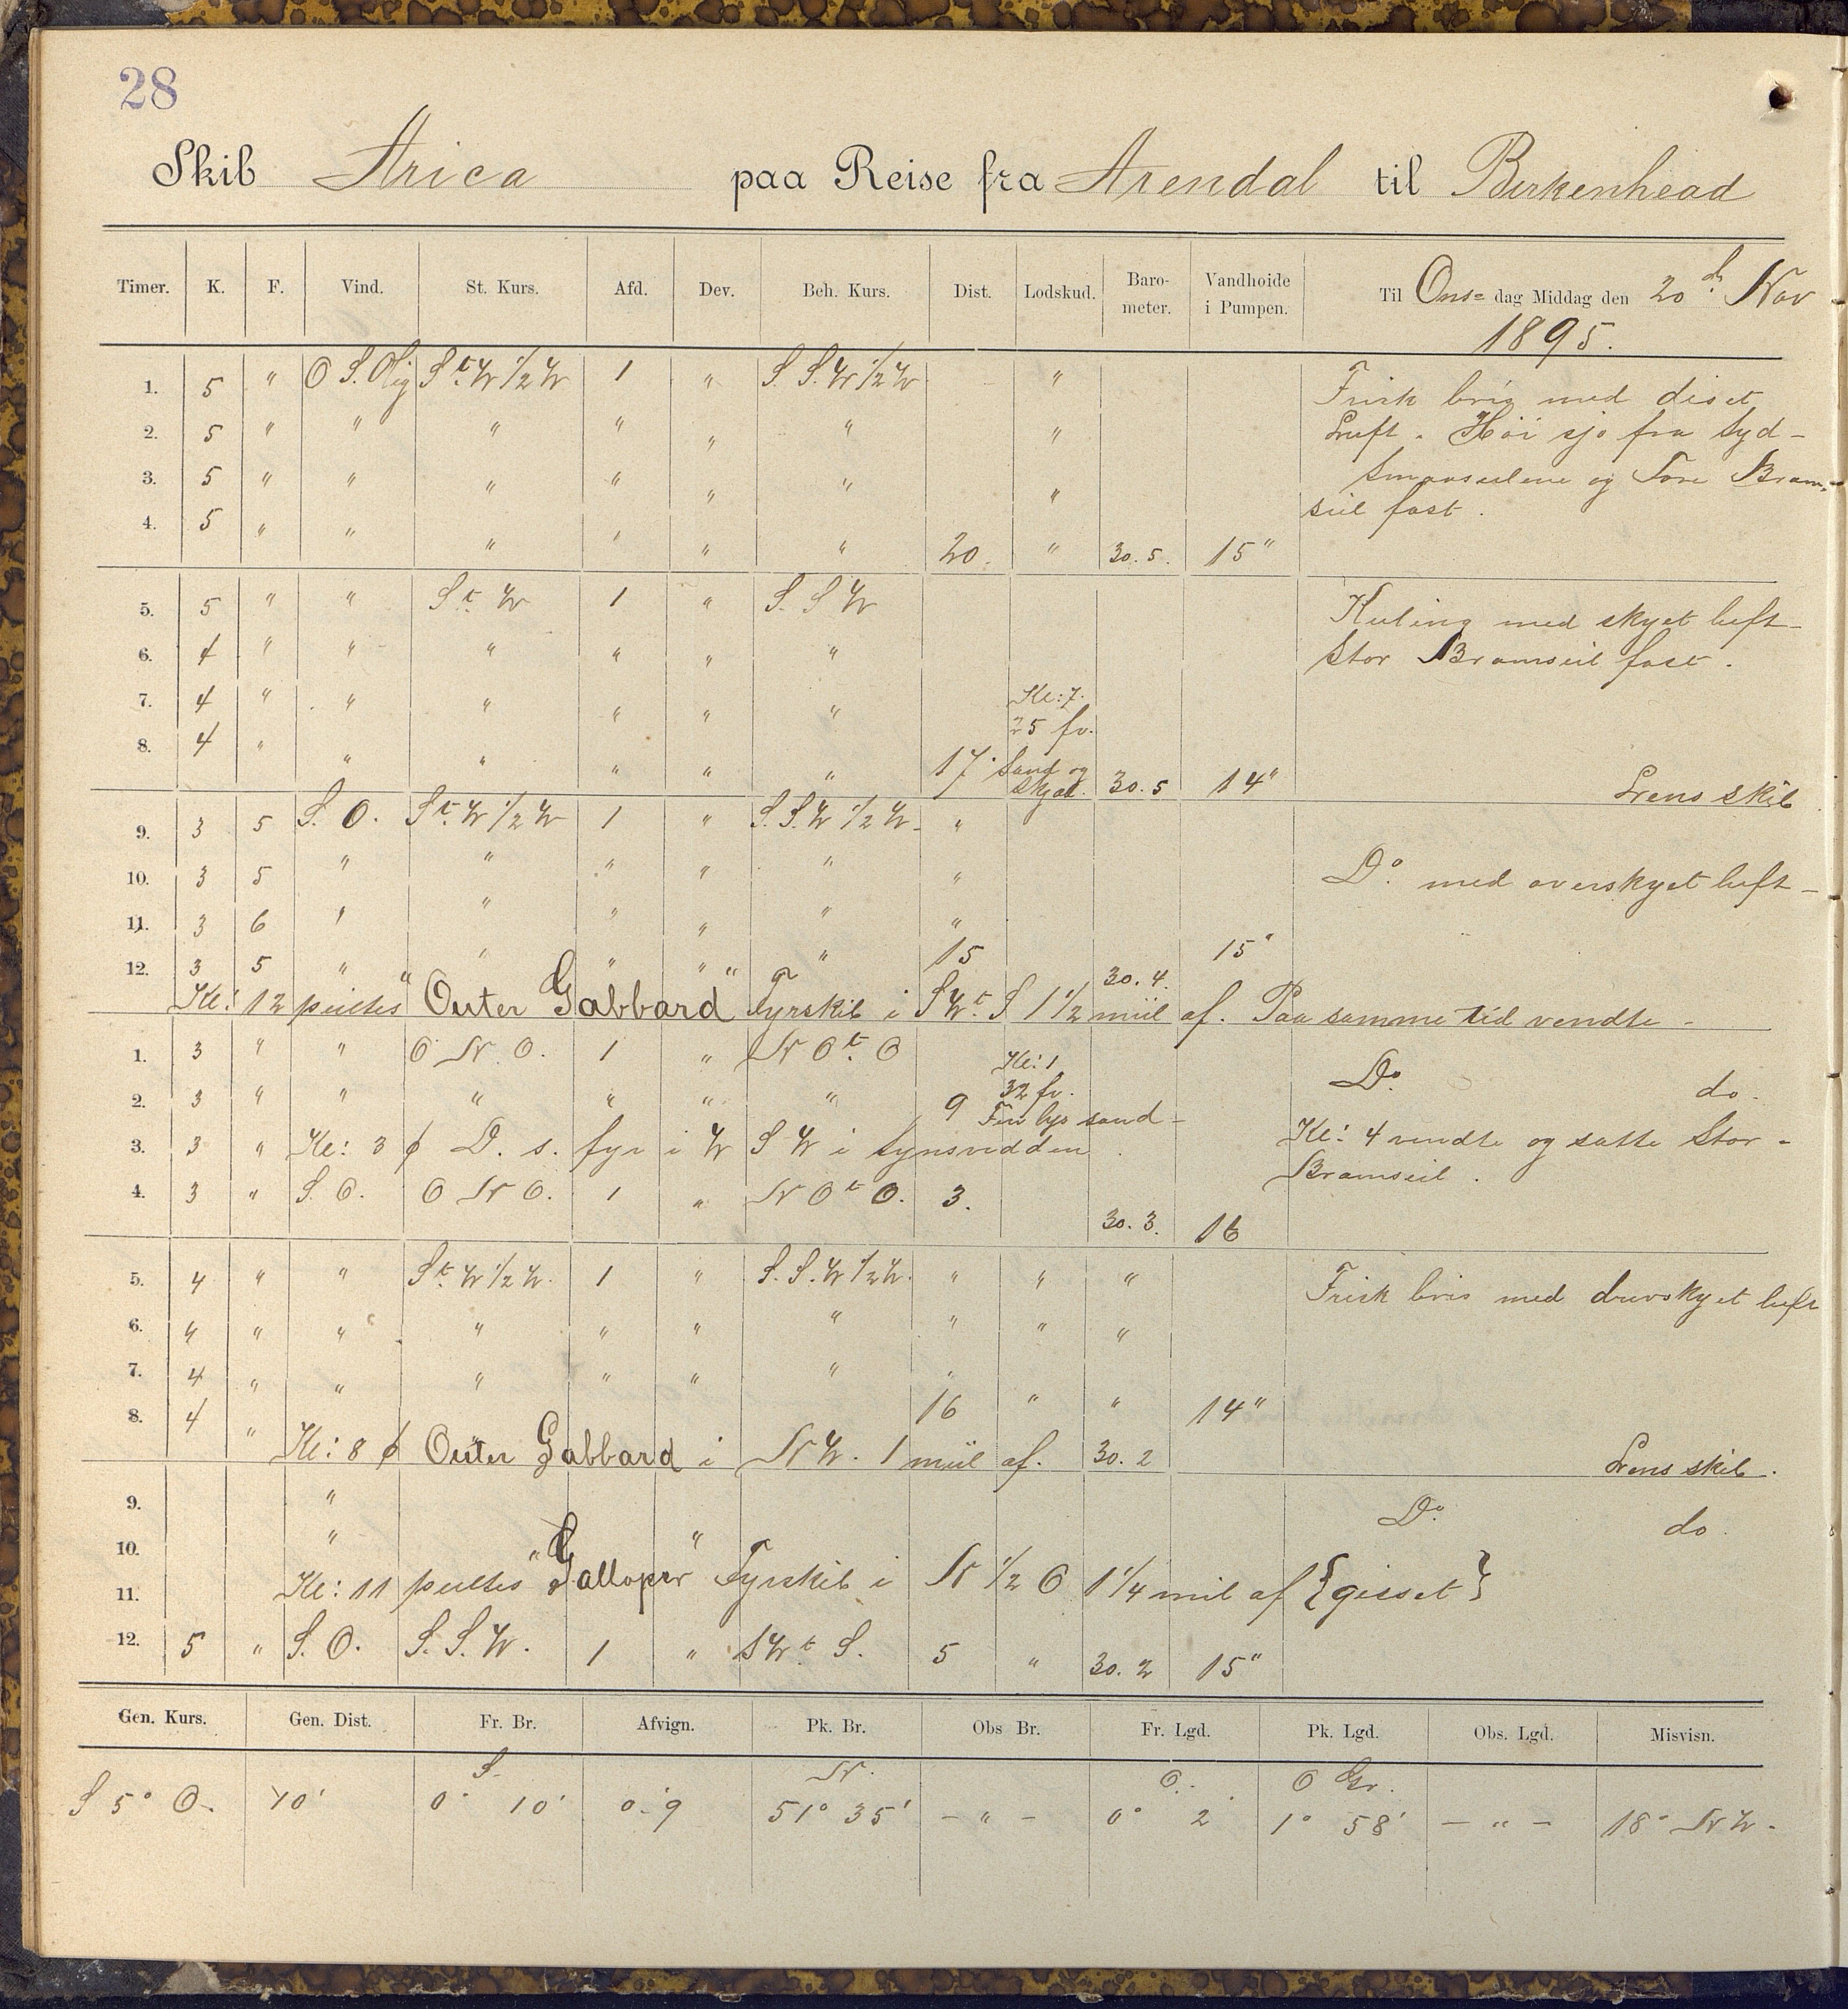 28
Skib Arica paa Reise fra Arendal til Birkenhead
Timer. K. F. Vind. St. Kurs. Afd. Dev. Beh. Kurs. Dist. Lodskud. Baro-meter. Vandhoide i Pumpen. Til Ons= dag Middag den 20d. Nov
1895.
1. 5 " O S. Olig St. W 1/2 W 1 " S. S. W 1/2 W " Frisk bris med diset
2. 5 " " " " " " " Luft. Høi sjø fra Syd-
3. 5 " " " " " " " Smaaseilene og Fore Bram-
seil fast.
4. 5 " " " " " " 20. " 30.5. 15"
5. 5 " " St. W 1 " S. S W Kuling med skyet luft
6. 4 " " " " " " Stor Bramseil fast.
7. 4 " " " " " " Kl: 7.
25 fv.
8. 4 " " " " " " 17. Sand og
Skjæl. 30.5 14" Lens skib
9. 3 5 S. O. St. W 1/2 W 1 " S. S. W 1/2 W "
10. 3 5 " " " " " " Do. med overskyet luft -
11. 3 6 " " " " " "
12. 3 5 " " " " " 15 30.4. 15"
Kl: 12 peiltes "Outer Gabbard" Fyrskib i S W t. S 1 1/2 miil af. Paa samme tid vendte -
1. 3 " " O N. O. 1 " N O t. O Kl: 1
32 fv. Do. do.
2. 3 " " " " " " 9 Fin lys sand -
3. 3 " Kl: 3 p D. s. fyr i W S W i synsvidden. Kl: 4 vendte og satte Stor -
Bramseil.
4. 3 " S. O. O N O. 1 " N O t O. 3. 30.3. 16
5. 4 " " St. W 1/2 W. 1 " S. S. W 1/2 W. " " " Frisk bris med overskyet luft
6. 4 " " " " " " " " "
7. 4 " " " " " " "
8. 4 " 16 " " 14"
Kl: 8 p Outer Gabbard i N W. 1 miil af. 30.2 Lens skib.
9. " Do. do.
10. "
11. Kl: 11 peiltes "Galloper" Fyrskib i N 1/2 O 1 1/4 mil af {gisset}
12. 5 " S. O. S. S. W. 1 " S W t. S. 5 " 30.2 15"
Gen. Kurs. Gen. Dist. Fr. Br. Afvign. Pk. Br. Obs Br. Fr. Lgd. Pk. Lgd. Obs. Lgd. Misvisn.
S. N. O. O Gr.
S 5° O. 10' 0° 10' 0.9 51° 35' - " - 0° 2' 1° 58' - " - 18° N W.